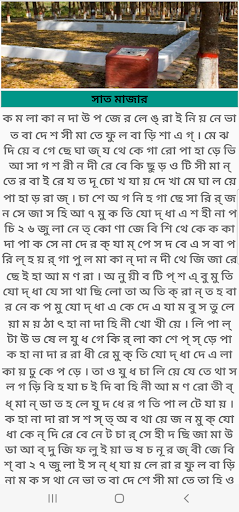 সাত মাজার
ক ম লা কা ন দা উ প জে র লে ঙ্ রা ই নি য় নে ভা
ত বা দে শ সী মা তে ফু ল বা ড়ি শা এ গ্ । মে ঝ
দি য়ে ব গে ছে ঘা জ্ য থে কে গা রো পা হা ড়ে ভি
আ সা গ শ রী ন দী রে বে কি ছু ড় ও টি সী মা ন্
তে র বা ই রে য ত দূ চো খ যা য় দে খা মে ঘা ল য়ে
পা হা ড় রা জ্ । চা শে অ গ নি হ গা ছে সা রি র্ জ
ন সে জা স হি আ ৭ মু ক তি যো দ্ ধা এ শ হী না প
চি ২ ৬ জু লা নে ত্ কো ণা জে বি শি থে কে ক কা
দা পা ক সে না দে র ক্ যা ম্ পে স দ বে এ স বা প
রি ল্ হ য় র্ গা পু ল মা কা ন্ দা ন দী থে জি জা রে
ছে ই হা আ ম ণ রা । অ নু য়ী ব টি প্ শ এ্ বু মু তি
যো দ্ ধা যে সা থা ছি লো তা অ তি ক্ রা ন্ ত হ বা
র নে ক প মু যো দ্ ধা এ কে দে এ যা ম বু স তু লে
য়া ম য় ঠা ৎ হা না দা হি নী খো খী য়ে । লি পা ল্
টা উ ভ ষে ল যু ধ গে কি র্ লা কা শে প্ স্ ড়ে পা
ক হা না দা র রা ধী রে মু ক্ তি যো দ্ ধা দে এ লা
কা য় ঢু কে প ড়ে । তা ও যু ধ চা লি য়ে যে তে থা স
ল গ ড়ি বি হ যা চ ই দি বা হি নী আ ম ণ রো তী ব্
ধ্ মা ন্ ভা ত হ লে যু দ ধে র গ তি পা ল টে যা য় ।
ক হা না দা রা স শ স্ ত্ অ ব থা য়ে জ ন মু ক্ যো
ধা কে ন্ দি রে বে ন টে চা র্ সে হী দ ছি জা মা উ
ডা আ ব্ দু জি ফ লু ই য়া ভ ষ চ নূ র জ্ বী জে বি
শ্ বা ২ ৭ জু লা ই স ন্ ধ্ যা য় লে রা র ফু ল বা ড়ি
না ম ক স থা নে ভা ত বা দে শে সী মা তে তা হি ও